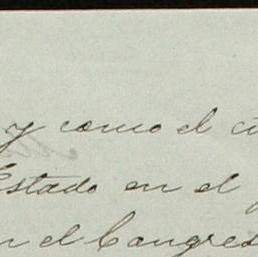 y como el ci
Estado en el
n el Congres